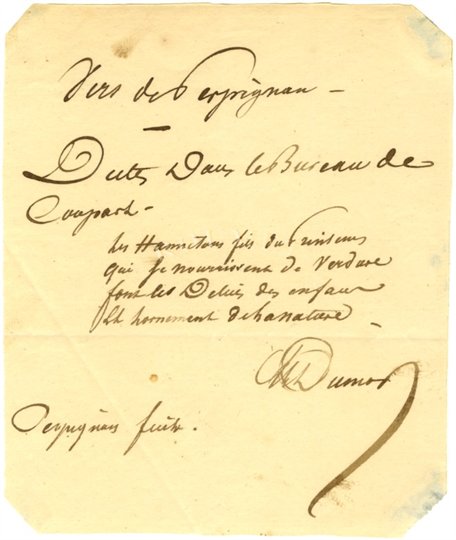 Vers de Perpignan —
Dits Dans le Bureau de
Coupart —
les Hannetons fils du Prinsens
qui se nourrissent de Verdure
font les Delices des enfans
Et hornement de la nature —
Dumas
Perpignan